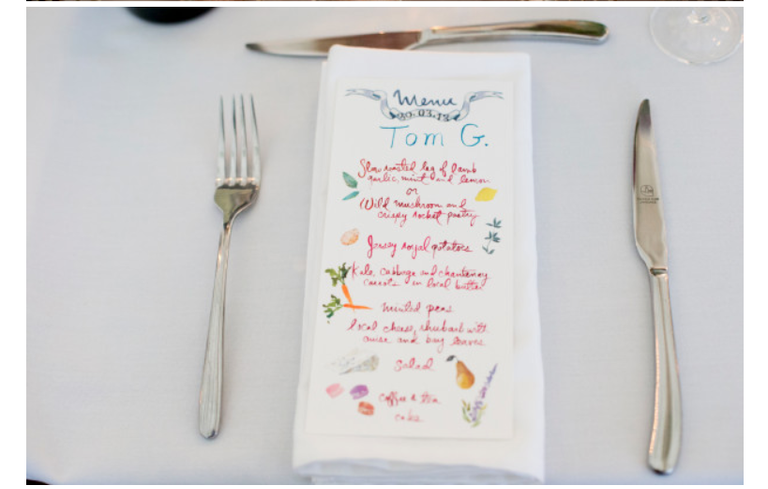 Menu
30.03.13
Tom G.
Slow roasted leg of lamb
garlic, mint and lemon
or
Wild mushroom and
crispy rocket pastry
Jersey royal potatoes
Kale, cabbage and chantenay
carrots in local butter
minted peas
local cheese, rhubarb with
anise and bay leaves
Salad
coffee & tea
cakes